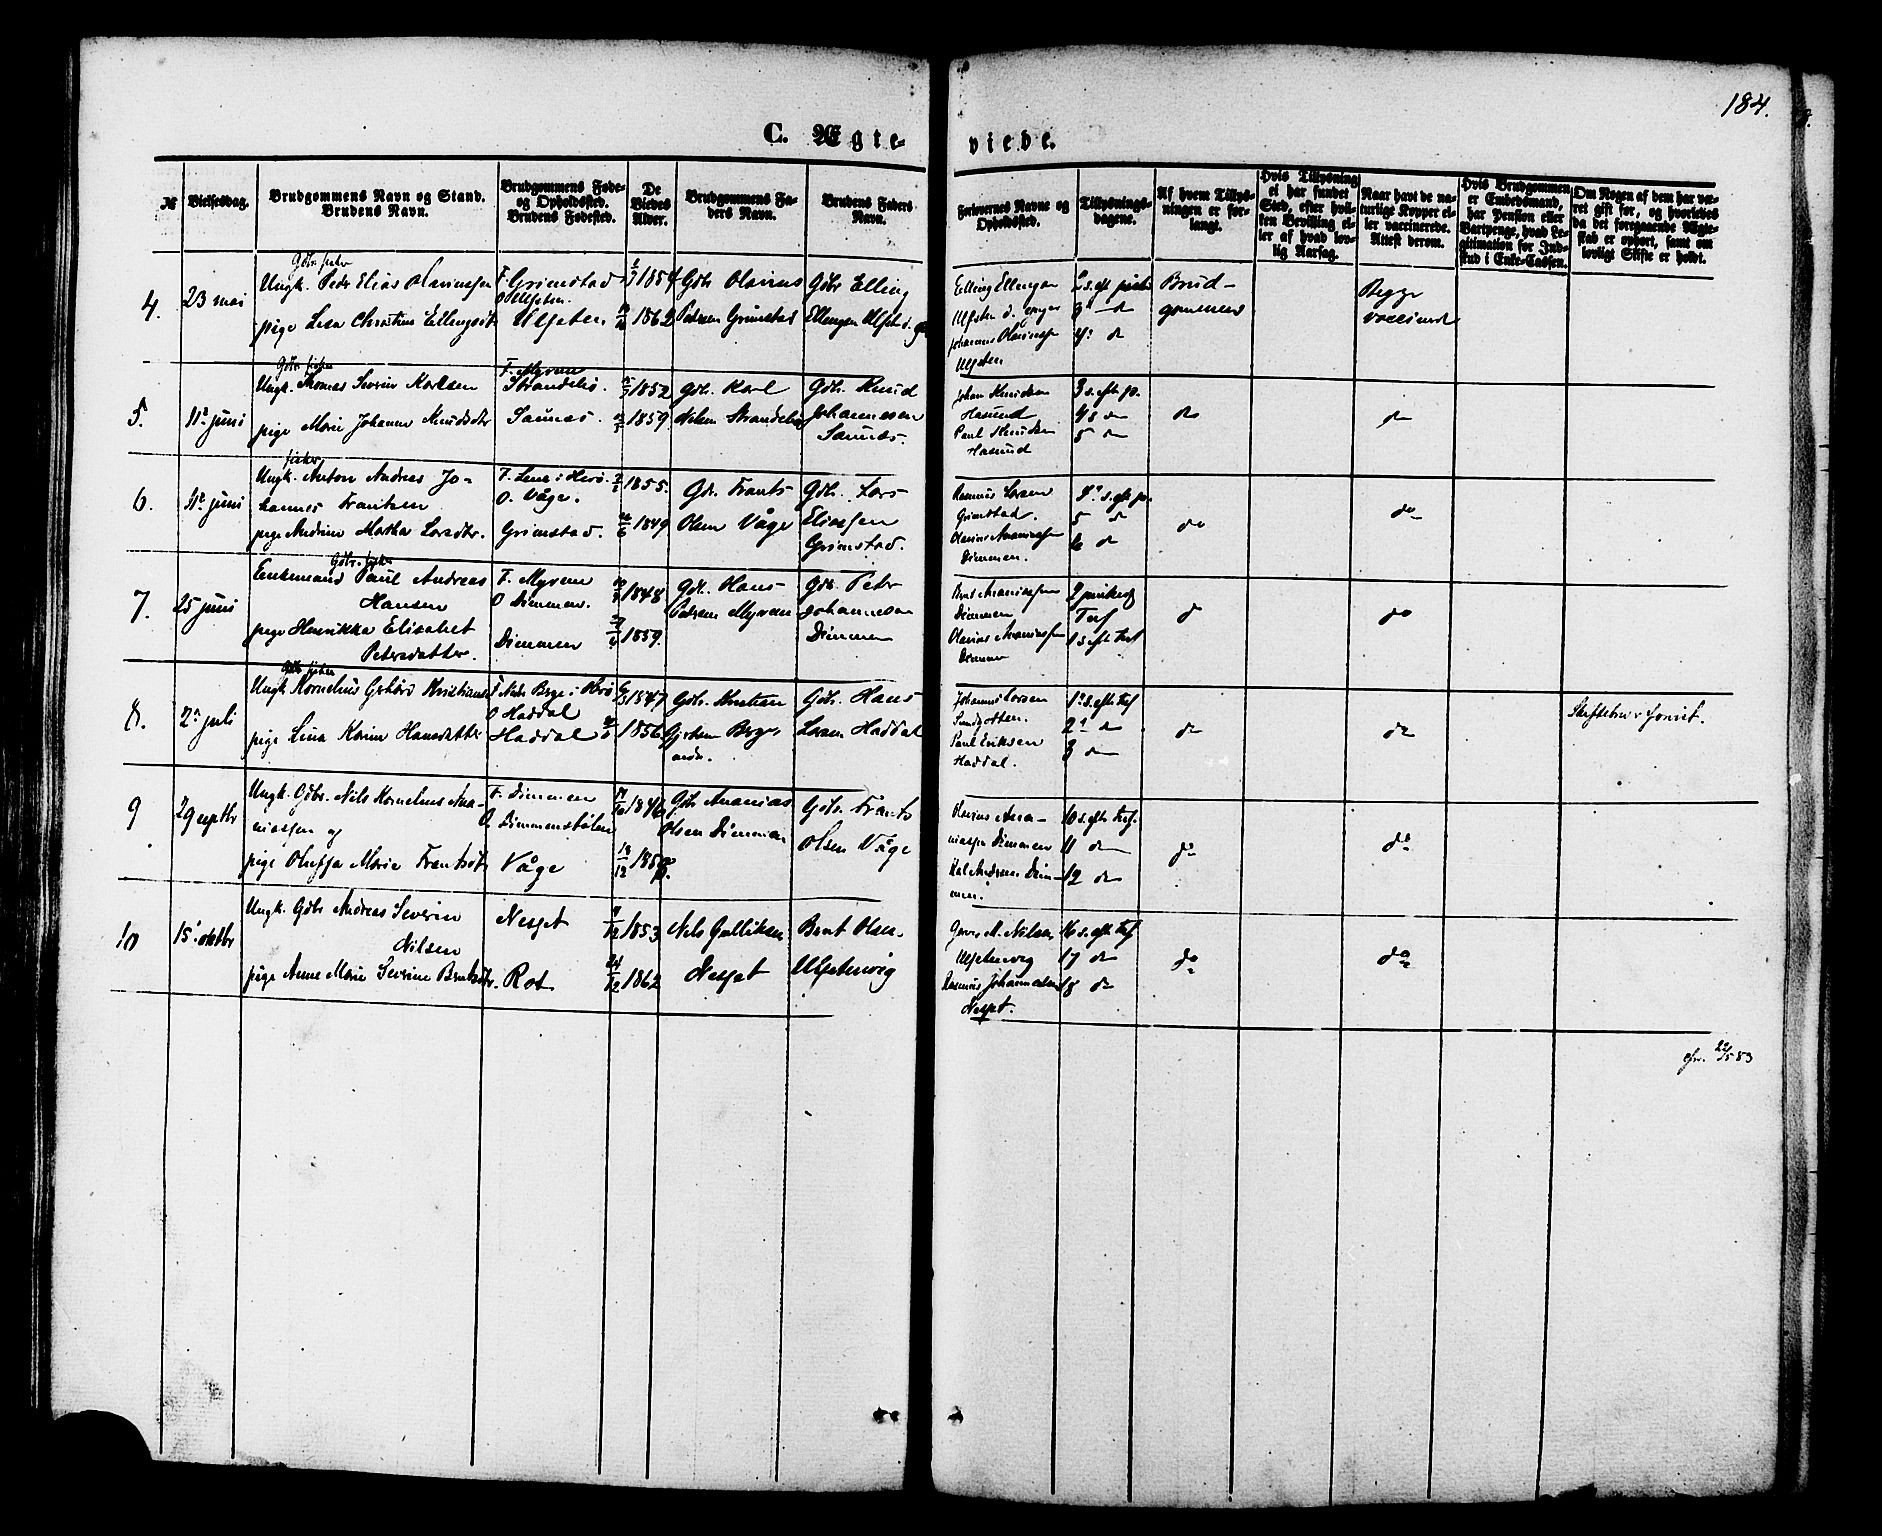 184.
C. Ægte-
viede.
№
Vielsesdag.
Brudgommens Navn og Stand.
Brudens Navn.
Brudgommens Føde-
og Opholdssted.
Brudens Fødested.
De
Viedes
Alder.
Brudgommens Fa-
ders Navn.
Brudens Faders
Navn.
Forlovernes Navne og
Opholdssted.
Tillysnings-
dagene.
Af hvem Tillys-
ningen er for-
langt.
Hvis Tillysning
ei har fundet
Sted, efter hvil-
ken Bevilling el-
ler af hvad lov-
lig Aarsag.
Naar havt de na-
turlige Kopper el-
ler vaccinerede.
Attest derom.
Hvis Brudgommen
er Embedsmand,
har Pension eller
Vartpenge, hvad Le-
gitimation for Ind-
skud i Enke-Cassen.
Om Nogen af dem har væ-
ret gift før, og hvorledes
da det foregaaende Ægte-
skab er ophørt, samt om
lovligt Skifte er holdt.
4.
23 mai
Gdbr. fisker
Ungk. Peder Elias Olavinssen
pige Lisa Christine Ellingsdtr
F. Grimstad
O Ulfsten
Ulfsten
1854
1862
Gdbr Olavius
Pedersen Grimstad
Gdbr Elling
Ellengsen Ulfst
Elling Ellengsen
Ulfsten
Johannes Olavinssen
Ulfsten
2 s. eft pints
3 do
4 do
Brud-
gommens
Begge
vaccinerede
5.
11te juni
Gdbr. fisker
Ungk. Thomas Severin Karlsen
pige Marie Johanne Knudsdtr
F. Myren
Strandebø
Saunes.
1852
1859
Gdbr. Karl
Nilsen Strandebø
Gdbr. Knud
Johannessen
Saunes.
Johan Knudsen
Hasund
Paul Knudsen
Hasund
3 s. eft. p.
4 s do
5 do
do
do
6.
11te juni
fisker
Ungk. Anton Andreas Jo-
hannes Frantzen
pige Andrine Martha Larsdtr.
F. Lene i Herø.
O. Våge.
Grimstad.
1855.
1849
Gdr. Frants
Olsen Våge
Gdbr. Lars
Eliassen
Grimstad.
Rasmus Larsen
Grimstad.
Olavius Ananiassen
Dimmen.
4de s. eft. p.
5 do
6 do
do
do
7.
25 juni
Gdbr. fisker
Enkemand Paul Andreas
Hansen
pige Henrikka Elisabet
Petersdatter.
F. Myren
O Dimmen.
Dimmen
1848
1859.
Gdb. Hans
Pedersen Myren
Gdb. Petr
Johannesen
Dimmen
Ananiassen
Dimmen
Olavius Ananiassen
Dimmen
2 pinsedg
Tref
1 s. eft Tref
do
do
8.
2den juli
Gdbr fisker
Ungk Kornelius Gehard Kristiansen
pige Lina Karine Hansdatter
F Nedre Berge i Herø
O Haddal
Haddal
1847
1856
Gdbr. Kristian
Berge
nedr.
Gdbr. Hans
Larsen Haddal
Johannes Larsen
Paul Eriksen
Haddal.
1ste s. eft Tref
2den do
3 do
do
do
9
29 septbr
Ungk. Gdbr. Nils Kornelius Ana-
niassen og
pige Oluffa Marie Frantsdtr
F. Dimmen
O. Dimmenstølen
Våge
18/12
Gdbr Ananias
Olsen Dimmen
Gdbr. Frants
Olsen Våge
Olavius Ana-
niassen Dimmen
Andreas Dim-
men.
10 s. eft Tref.
11 do
12 do
do
do
10
15 oktbr
Ungk. Gdbr Andreas Severin
Nilsen
pige Anne Marie Severine Berntsdtr.
Nesset
Rot
1853
1862
Nils Gulliksen
Nesset
Bernt Olsen
Ulfstenvig
M. Nilsen
Ulfstenvig
Rasmus Johannesen
Nesset.
16 s. eft Tref
17 do
18 do
do
do
22/5 83